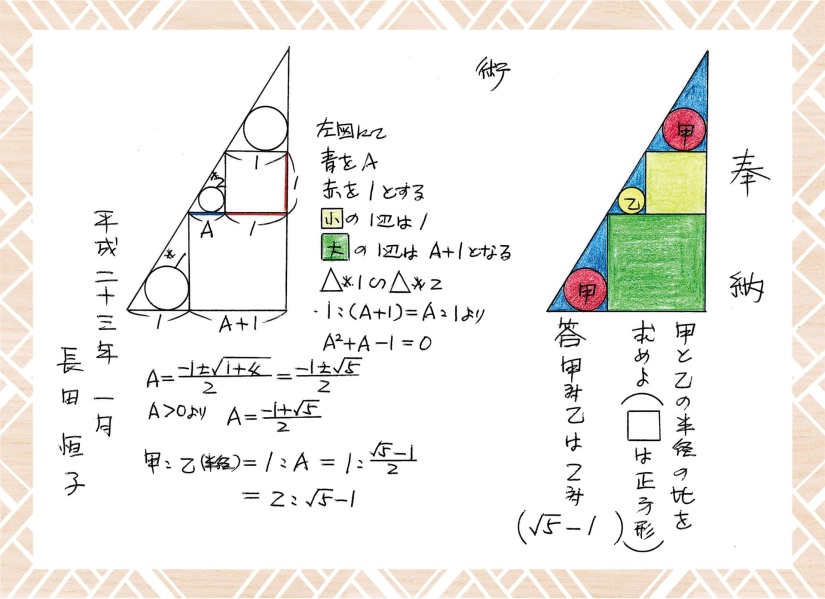 奉納
甲と乙の半径の比を
求めよ(□は正方形)
答 甲対乙は2対
(√5-1)
甲
乙
甲
術
左図にて
青をA
赤を1とする
小の1辺は1
大の1辺はA+1となる
△*1∽△*2
1:(A+1)=A:1より
A²+A-1=0
1
1
*2
A
1
*1
1
A+1
A=(-1±√(1+4))/2=(-1±√5)/2
A>0より A=(-1+√5)/2
甲:乙(半径)=1:A=1:(√5-1)/2
=2:√5-1
平成二十三年一月
長田恒子